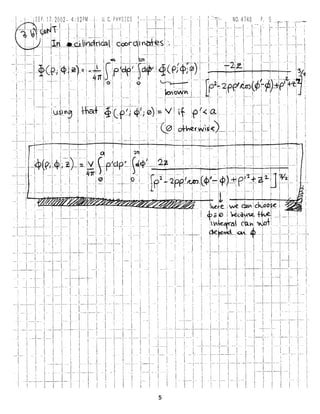 SEP. 17. 2002 4:12PM U C PHYSICS NO. 4743 P. 5
3 b) CONT
In cilindrical coordinates :
Φ(ρ, φ, z) = - 1/4π ∫₀^∞ ρ'dρ' ∫₀^2π dφ' Φ(ρ', φ', 0) -2z / [ρ² - 2ρρ' cos(φ'-φ) + ρ'² + z²]^3/2
known
using that Φ(ρ'; φ'; 0) = V if ρ' < a
(0 otherwise)
Φ(ρ, φ, z) = V/4π ∫₀^a ρ'dρ' ∫₀^2π dφ' 2z / [ρ² - 2ρρ' cos(φ'-φ) + ρ'² + z²]^3/2
here we can choose
φ=0 because the
integral can not
depend on φ
5